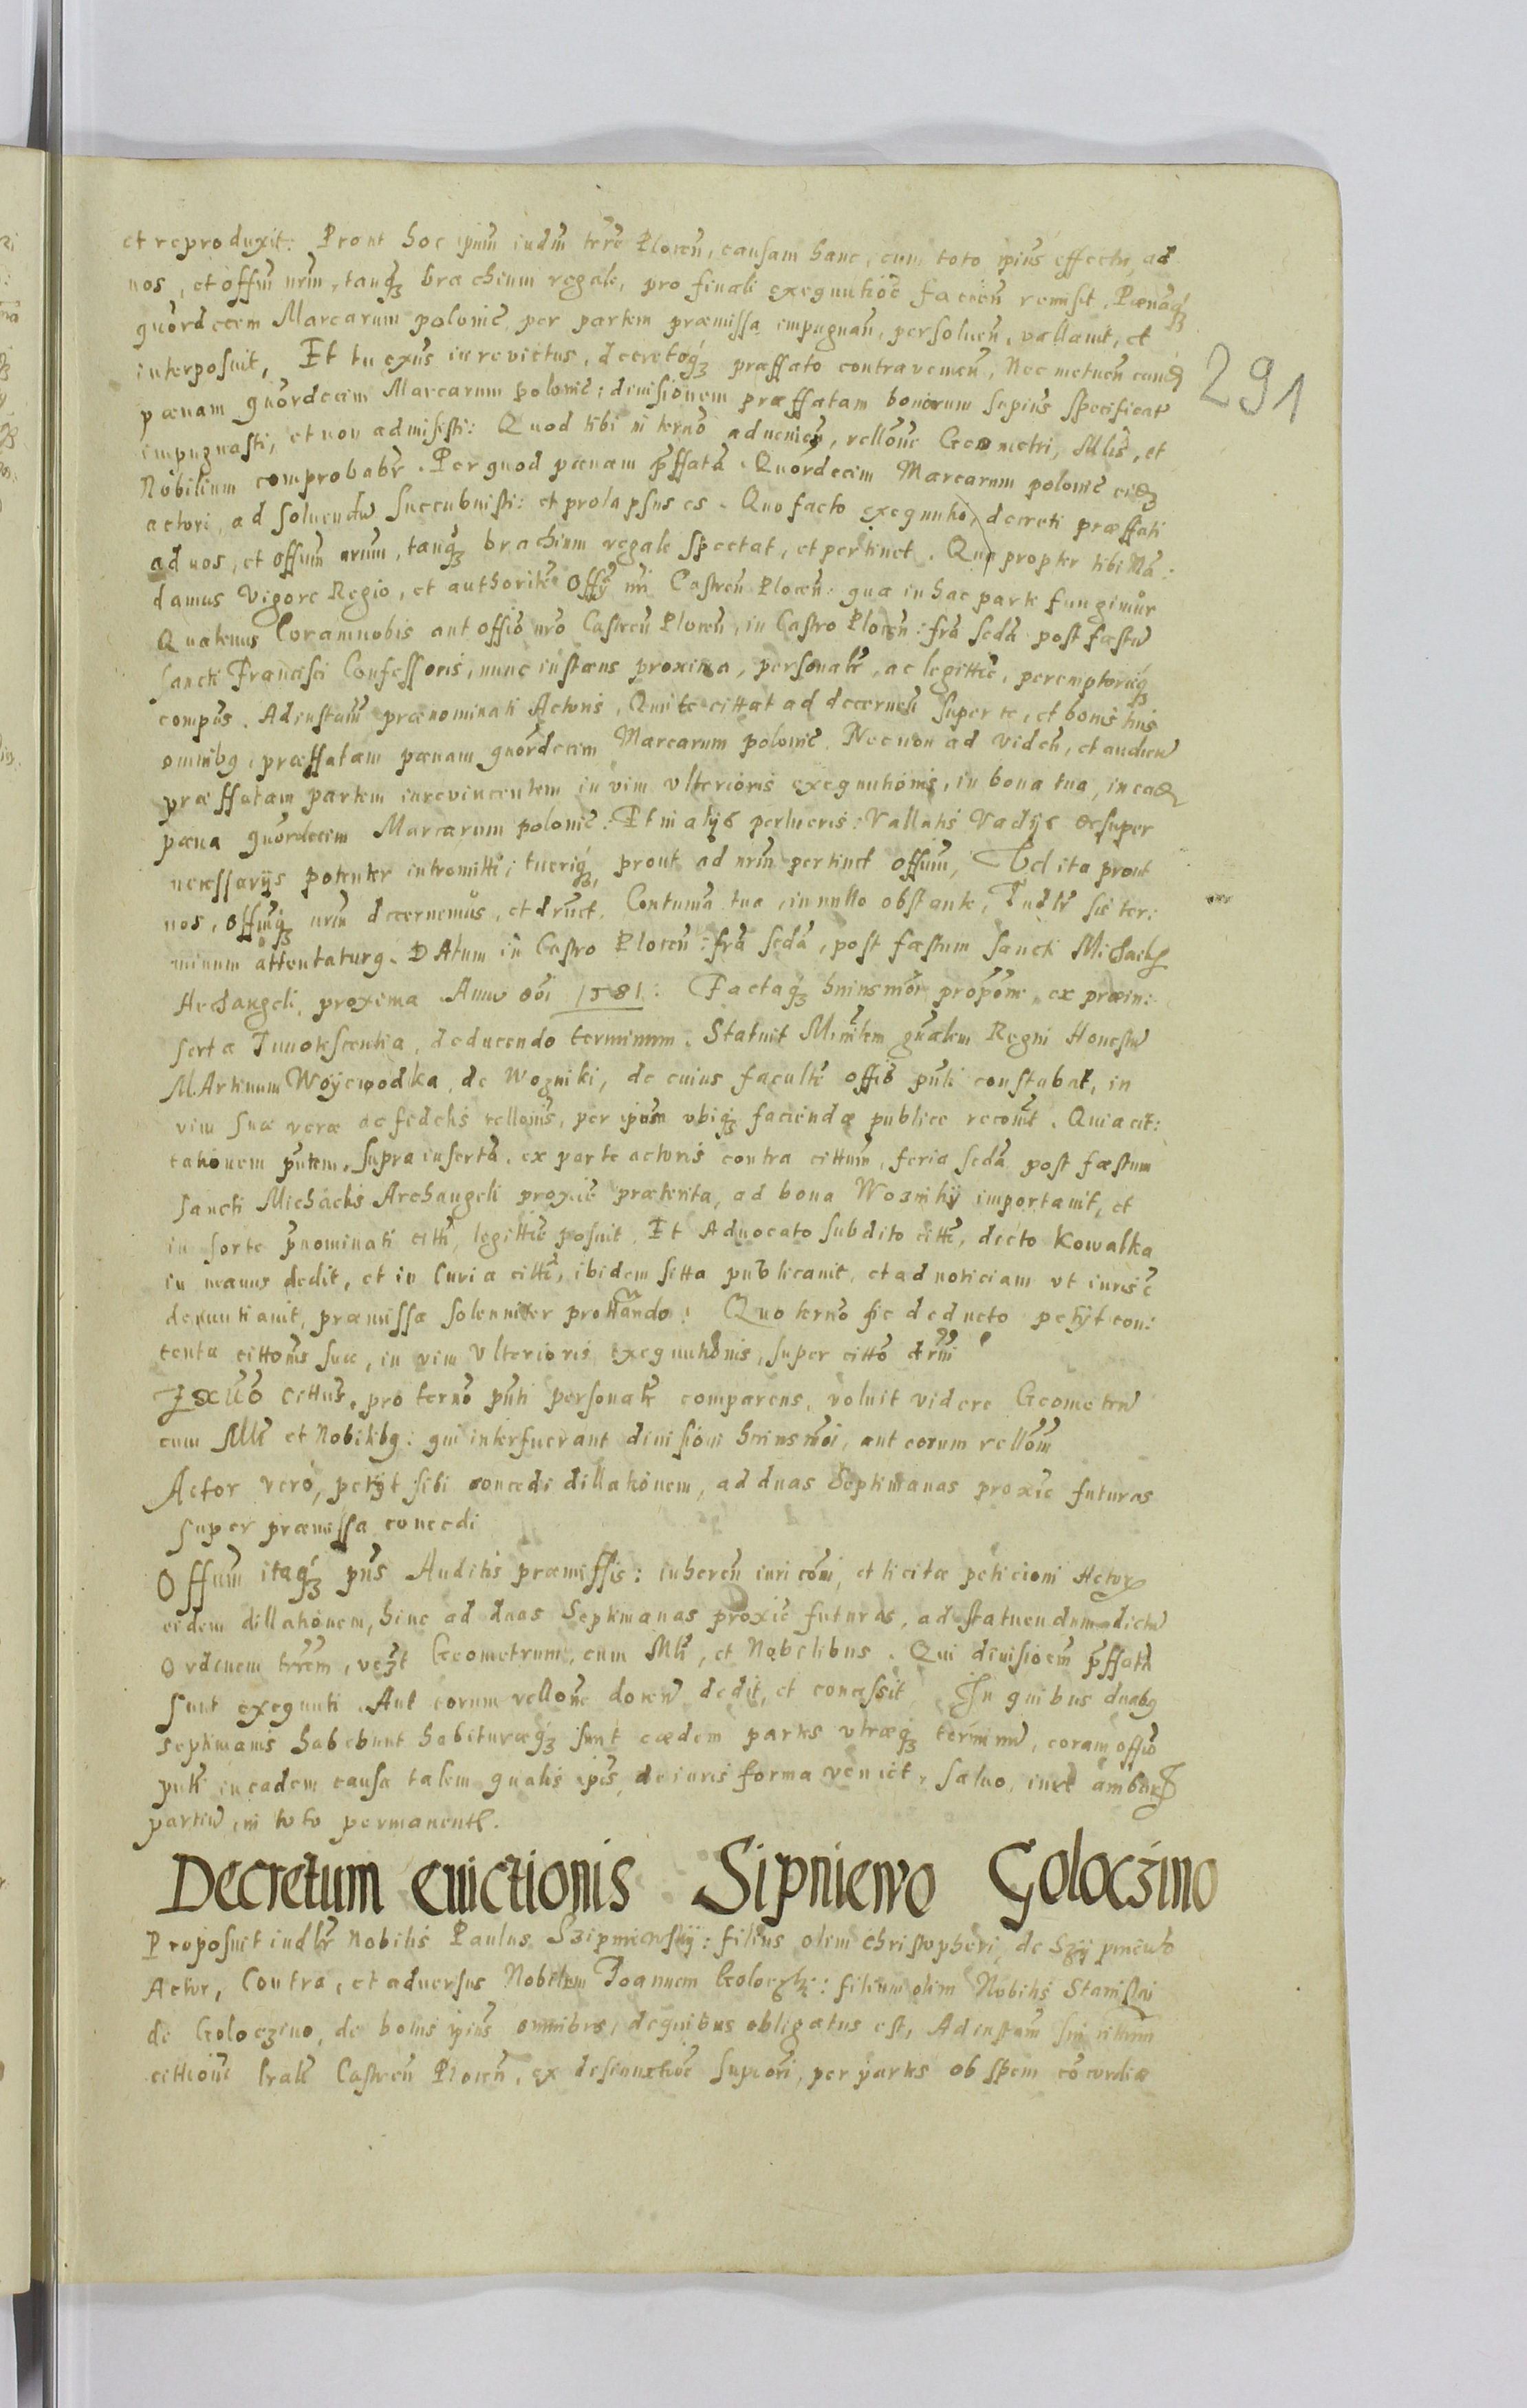 et reproduxit: Pront hoc ipm̃ iudm̃ terrẽ Plocen̄, causam hanc, cum toto ipiũs effectu, ad
nos, et offm̃ nrm̃, tanq̃ʒ brachium regale, pro finali exequutiõe facien̄ remisit. Pænaq́ʒ
quõrdecem Marcarum polonic̃, per partem præmissa impugnan̄, persoluen̄, vallauit, et
interposuit, Et tu exũs inrevictus, decretoq́ʒ præffato contravenien̄, Nec metuen̄ eand
pænam quõrdecim Marcarum polonic̃: diuisionem præffatam bonorum sepius specificat
impugnasti, et non admisisti: Quod tibi in ternõ advenien̄, rellõne Geometri, Mlis̃, et
Nobilium comprobabr̃. Per quod pœnam p̃ffatã Quõrdecim Marcarum polonic̃ eidʒ
actori, ad soluendũ succubuisti: et prolapsus es. Quo facto exequutio, decreti præffati
ad nos, et offium nrum, tanq̃ʒ brachium regale spectat, et pertinet. Qua propter tibi Mã:
damus Vigore Regio, et authoritẽ Offy̋ nri Castren̄ Plocen̄: qua in hac parte fungimur
Quatenus Coramnobis aut offiõ nrõ Castren̄ Plocen̄, in Castro Plocen̄: fr̃a sedã post fæstũ
Sancti Francisci Confessoris, nunc instans proxima, personalr̃, ac legittiẽ, peremptorieq́ʒ
compũs. Ad instam̃ prænominati Actoris, Qui te cittat ad decernen̄ super te, et bonis tuis
omnibꝫ, præffatam pænam quõrdecim Marcarum polonic̃. Necnon ad viden̄, et audien̄
præffatam partem inrevincentem in vim vlterioris exequutionis, in bona tua, in eadʒ
pæna quõrdecim Marcarum polonic̃: Et in alijs perlucris: Vallatis Vadijs desuper
necessarijs potenter intromitti, tueriq́ʒ, prout ad nrm̃ pertinet offium, Vel ita prout
nos, offiũq́ʒ nrm̃ decernemus, et druẽt. Contuma tua, in nullo obstante, Iudlr̃ sis ter:
minum attentaturꝫ. DAtum in Castro Plocen̄: fr̃a sedã, post fæstum Sancti Michaelis
Archangeli, proxima Anno dõi 1581: Factaq́ʒ huiusmõi propõne, ex præin:
serta Innotescentia, deducendo terminum. Statuit Minr̃lem gñalem Regni Honestũ
MArtinum Woyewodka, de Wozniki, de cuius facultẽ offiõ pn̄ti constabat, in
vim suæ veræ ac fidelis rellois, per ipsum vbiq́ʒ faciendæ publice recoũit. Quia cit:
tationem pn̄tem, supra insertã, ex parte actoris contra cittum̃, feria sedã post fæstum
Sancti Michaelis Archangeli proxiẽ præterita, ad bona Wozniki importauit, et
in sorte p̃nominati citti, legittiẽ posuit. Et Aduocato subdito citti, dicto Kowalka
in manus dedit, et in Curia citti, ibidem sitta publicauit, et ad noticiam vt iuris ẽ
denuntiauit, præmissa solenniter prottãndo: Quo ternõ sic deducto petijt con:
tenta cittonis suæ, in vim Vlterioris exequutionis, super cittõ drñi
Exuõ cittus, pro ternõ pn̄ti personalr̃ comparens, voluit videre Geometrũ
cum Mli et Nobilibꝫ: qui interfuerant diuisioni huiusmõi, aut eorum rellõm̃
Actor verò, petijt sibi concedi dillationem, ad duas Septimanas proxiẽ futuras
super præmissa concedi
Offium itaq́ʒ pn̄s Auditis præmissis: inheren̄ iuri cõmi, et licitæ peticioni Actoris
eidem dillationem, hinc ad duas Septimanas proxiẽ futuras, ad statuendum dictũ
Ordinem trrẽm, vcʒt Geometrum, cum Mli, et Nobilibus. Qui diuisiõem p̃ffatã
sunt exequuti. Aut eorum rellone docen̄ dedit, et concessit In quibus duabꝫ
septimanis habebunt habituræq́ʒ sunt eædem partes vtræq́ʒ terminũ, coram offiõ
pn̄ti in eadem causa talem qualis ipis, de iuris forma veniet, saluo iure ambarʒ
partiũ, in toto permanente.
Decretum euictionis Sipniewo Goloczino
Proposuit iudlr̃ Nobilis Paulus Szipniewsky: filius olim Christopheri, de Szypniewo
Actor, Contra, et aduersus Nobilem Joannem Goloczki: filium olim Nobilis Stanislai
de Goloczino, de bonis ipiũs omnibus, de quibus obligatus est, Ad instam̃ sui
cittioni lralẽ Castren̄ Plocen̄, ex superiõri, per partes ob spem cõcordiæ
291